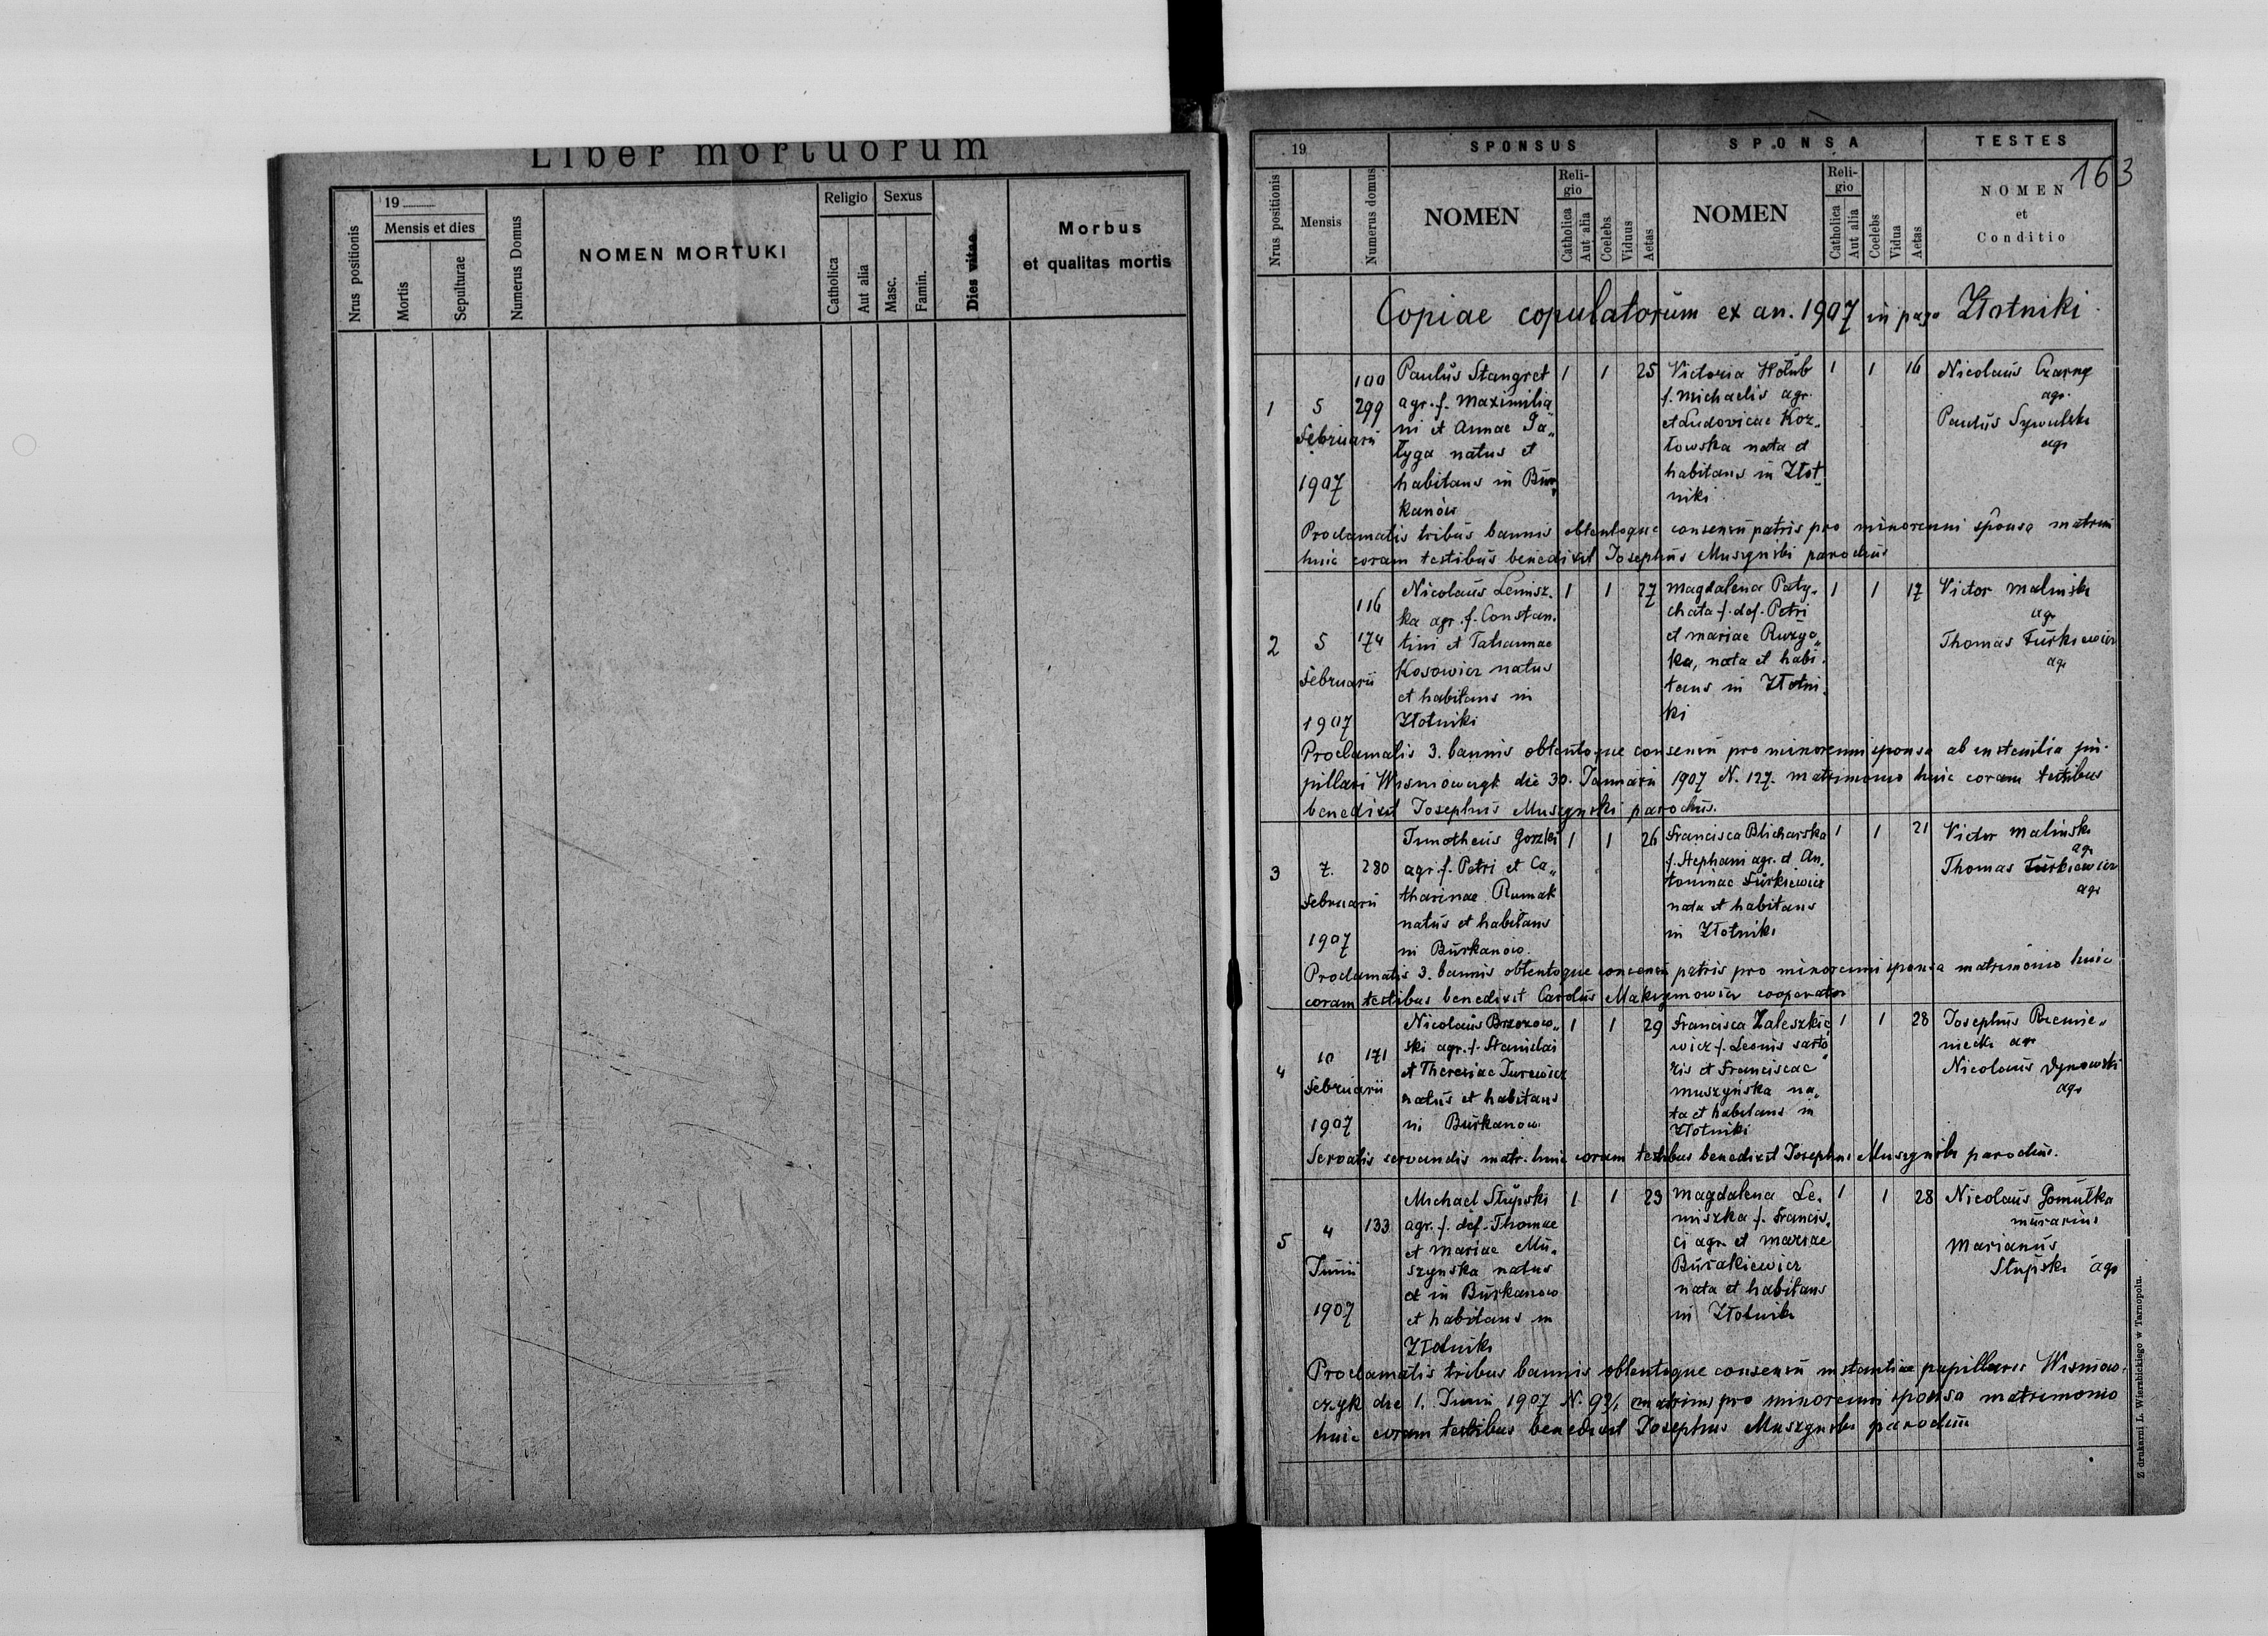 Liber mortuorum
Nrus positionis
19
Mensis et dies
Mortis
Sepulturae
Numerus Domus
NOMEN MORTUKI
Religio
Catholica
Aut alia
Sexus
Masc.
Famin.
Dies vitae
Morbus
et qualitas mortis
163
19
SPONSUS
SPONSA
TESTES
Nrus positionis
Mensis
Numerus domus
NOMEN
Reli-
gio
Catholica
Aut alia
Coelebs
Viduus
Aetas
NOMEN
Reli-
gio
Catholica
Aut alia
Coelebs
Vidua
Aetas
NOMEN
et
Conditio
Copiae copulatorum ex an. 1907 in pago Złotniki
1
5
Februarii
1907
100
299
Paulus Stangret
agr. f. Maximilia„
ni et Annae Ja„
łyga natus et
habitans in Bur„
kanów
1 1 25
Victoria Hołub
f. Michaelis agr.
et Ludovicae Koz„
łowska nata et
habitans in Złot„
niki
1 1 16
Nicolaus Czarny
agr.
Paulus Szwulski
agr
Proclamatis tribus bannis obtentoque consensu patris pro minorenni sponsa matrim
huic coram testibus benedixit Josephus Muszyński parochus
2
5
Februarii
1907
116
174
Nicolaus Lemisz.
ka agr. f. Constan.
tini et Tatiannae
Kosowicz natus
et habitans in
Złotniki
1 1 27
Magdalena Paty.
chata f. def. Petri
et Mariae Ruzyc„
ka, nata et habi.
tans in Złotni.
ki
1 1 17
Victor Malinski
agr
Thomas Turkiewicz
agr
Proclamatis 3. bannis obtentoque consensu pro minorenni sponsa ab instantia pu.
pillari Wisniowczyk die 30. Januarii 1907 N. 127. matrimonio huic coram testibus
benedixit Josephus Muszynski parochus.
3
7.
Februarii
1907
280
Timotheus Gorzki
agr. f. Petri et Ca„
tharinae Rumak
natus et habitans
in Burkanow.
1 1 26
Francisca Blicharska
f. Stephani agr. et An.
toninae Turkiewicz
nata et habitans
in Złotniki
1 1 21
Victor Malinski
agr
Thomas Turkiewicz
agr
Proclamatis 3. bannis obtentoque consensu patris pro minorenni sponsa matrimonio huic
coram testibus benedixit Carolus Maksymowicz cooperator
4
10
Februarii
1907
171
Nicolaus Brzozow„
ski agr. f. Stanislai
et Theresiae Jurewicz
natus et habitans
in Burkanow.
1 1 29
Francisca Zaleszkie
wicz f. Leonis sarto„
ris et Franciscae
Muszyńska na„
ta et habitans in
Złotniki
1 1 28
Josephus
agr
Nicolaus Dynowski
agr
Servatis servandis matr. huic coram testibus benedixit Josephus Muszynski parochus.
5
4
Junii
1907
133
Michael Słupski
agr. f. def. Thomae
et Mariae Mu„
szynska natus
et in Burkanow
et habitans in
Złotniki
1 1 23
Magdalena Le.
miszka f. Francis.
ci agr. et Mariae
Burakiewicz
nata et habitans
in Złotniki
1 1 28
Nicolaus Gomułka
murarius
Marianus
Słupski agr
Proclamatis tribus bannis obtentoque consensu instantiae pupillaris Wisniow.
czyk die 1. Junii 1907 N. pro minorenni sponso matrimonio
huic coram testibus benedixit Josephus Muszynski parochus
Z drukarni L. Wierzbickiego w Tarnopolu.